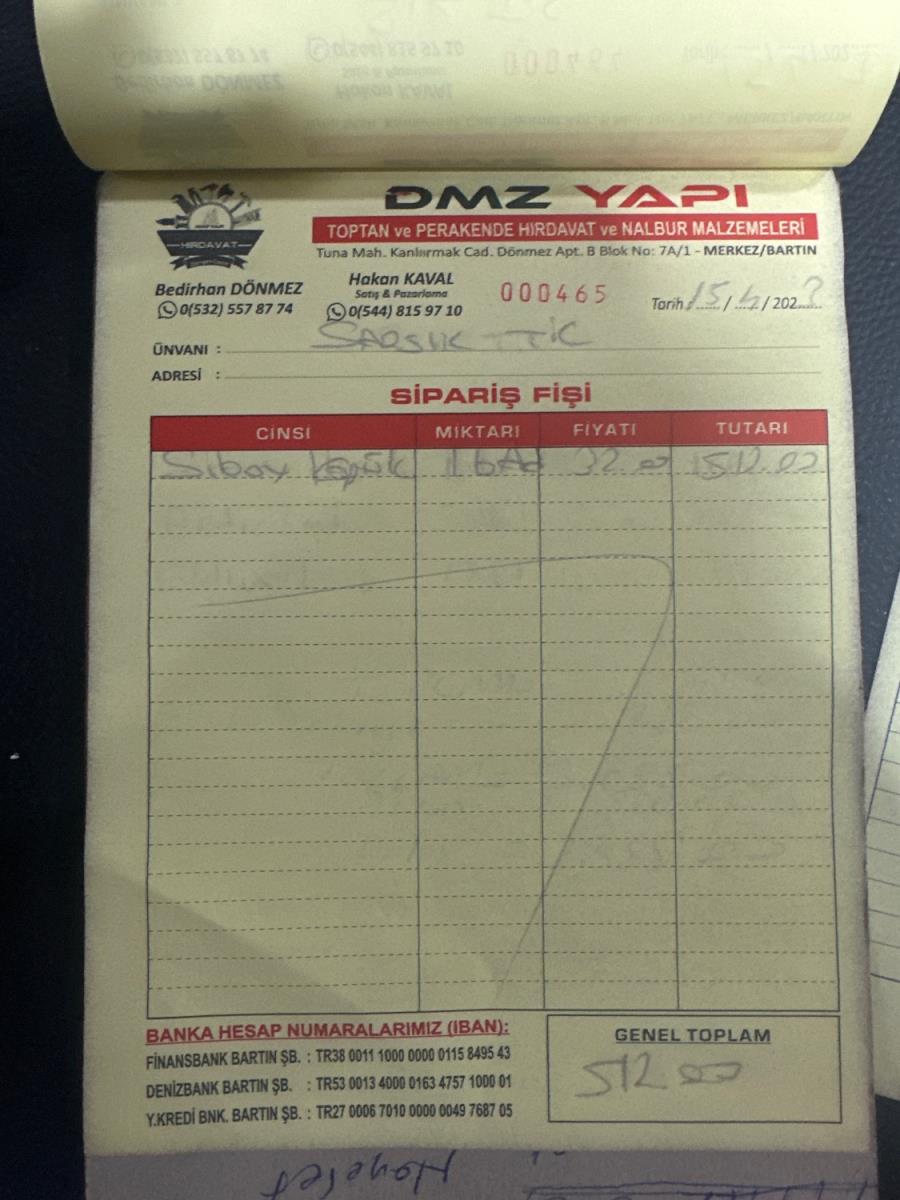 DMZ YAPI
HIRDAVAT
TOPTAN ve PERAKENDE HIRDAVAT ve NALBUR MALZEMELERİ
Tuna Mah. Kanlıırmak Cad. Dönmez Apt. B Blok No: 7A/1 - MERKEZ/BARTIN
Bedirhan DÖNMEZ
0(532) 557 87 74
Hakan KAVAL
Satış & Pazarlama
0(544) 815 97 10
000465
Tarih : 15 / 4 / 202
ÜNVANI :
ADRESİ :
SİPARİŞ FİŞİ
CİNSİ MİKTARI FİYATI TUTARI
Köpük 16 Ad 32.00 512.00
BANKA HESAP NUMARALARIMIZ (IBAN):
FİNANSBANK BARTIN ŞB. : TR38 0011 1000 0000 0115 8495 43
DENİZBANK BARTIN ŞB. : TR53 0013 4000 0163 4757 1000 01
Y.KREDİ BNK. BARTIN ŞB. : TR27 0006 7010 0000 0049 7687 05
GENEL TOPLAM
512.00